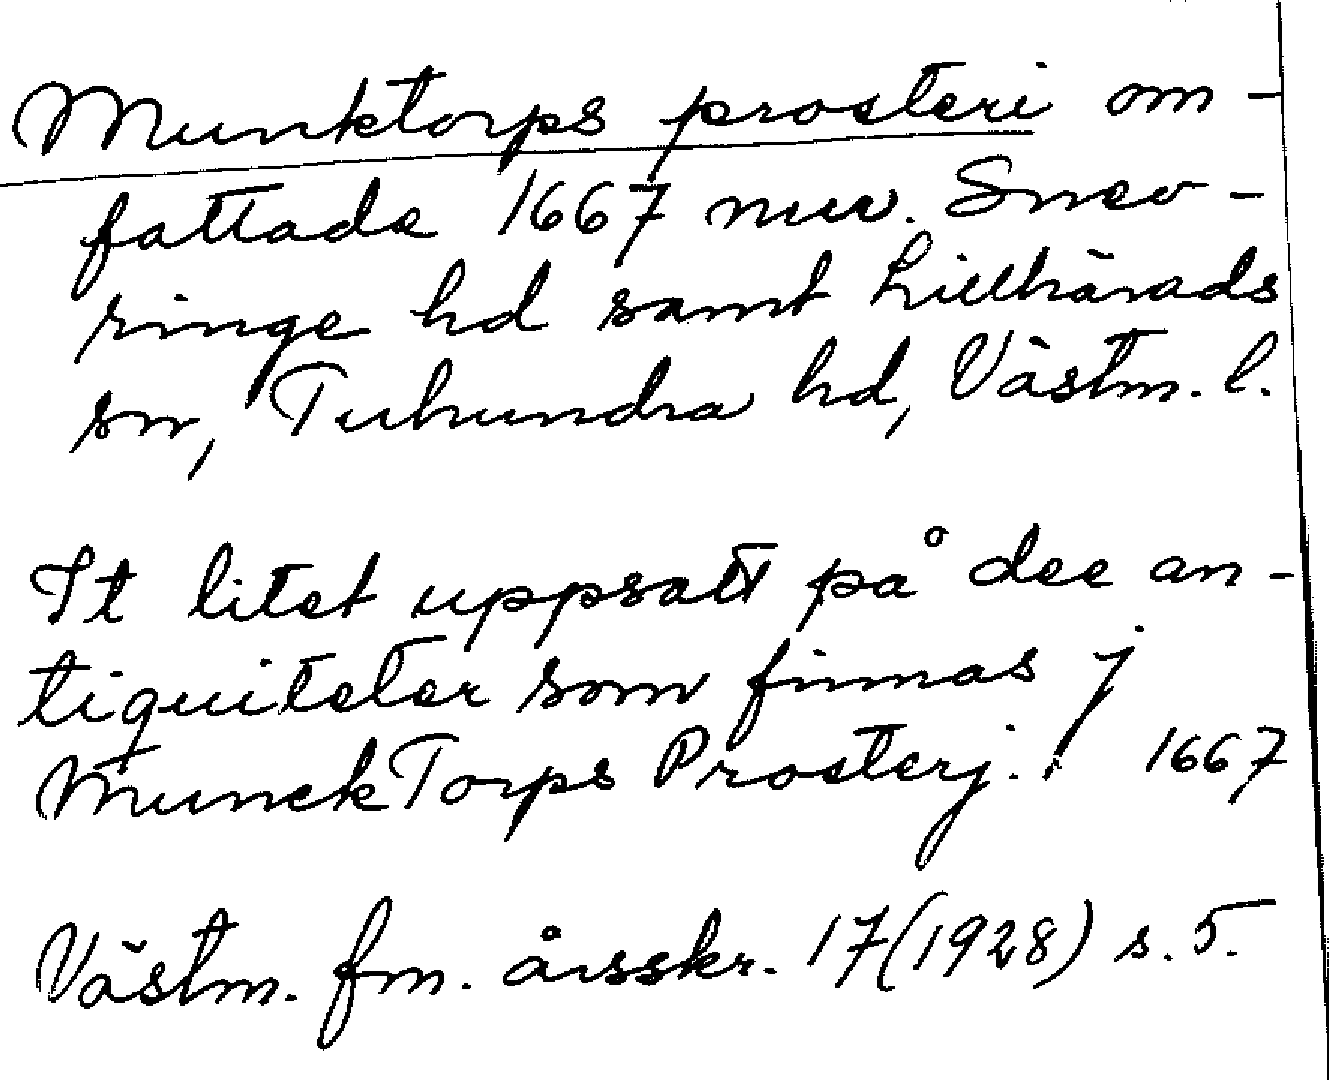 Munktorps prosteri om-
fattade 1667 nuv. Snev-
ringe hd samt Lillhärads
sn, Tuhundra hd, Västm. l.
It litet uppsatt på dee an-
tiquiteter som finnas j
MunckTorps Prosterj. 1667
Västm. fm. årsskr. 17(1928) s. 5.